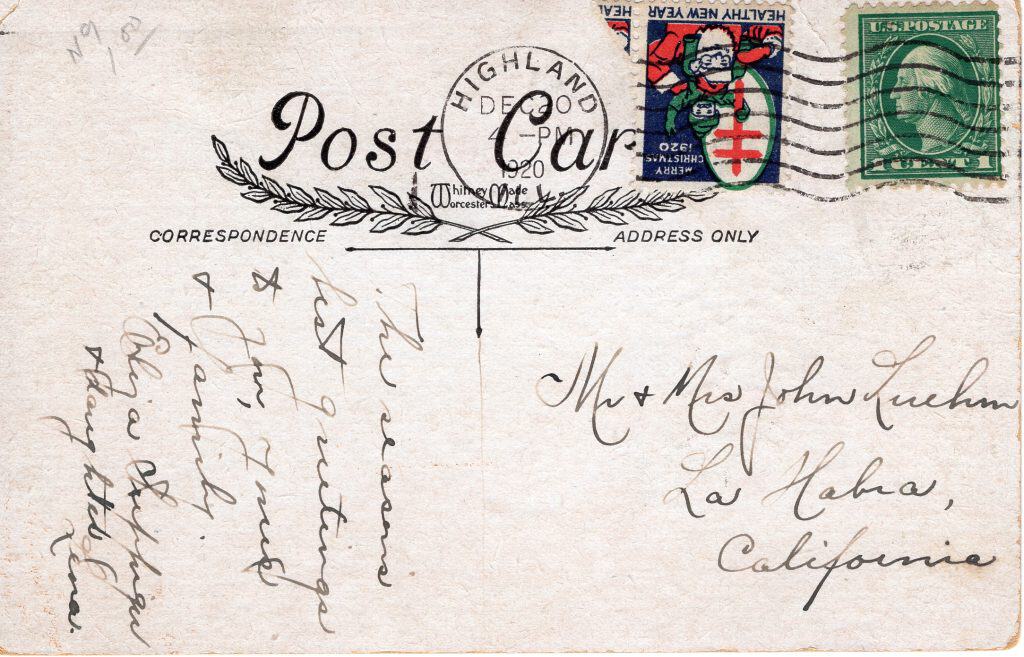 Post Car
HIGHLAND
DEC 20
4 - PM
1920
Whitney Made
Worcester, Mass.
HEALTHY NEW YEAR
MERRY
CHRISTMAS
1920
U.S. POSTAGE
1 CENT 1
CORRESPONDENCE
ADDRESS ONLY
The seasons
best greetings
to you,
+ family.
+ Daughter
Lena.
Mr + Mrs John Luehm
La Habra,
California